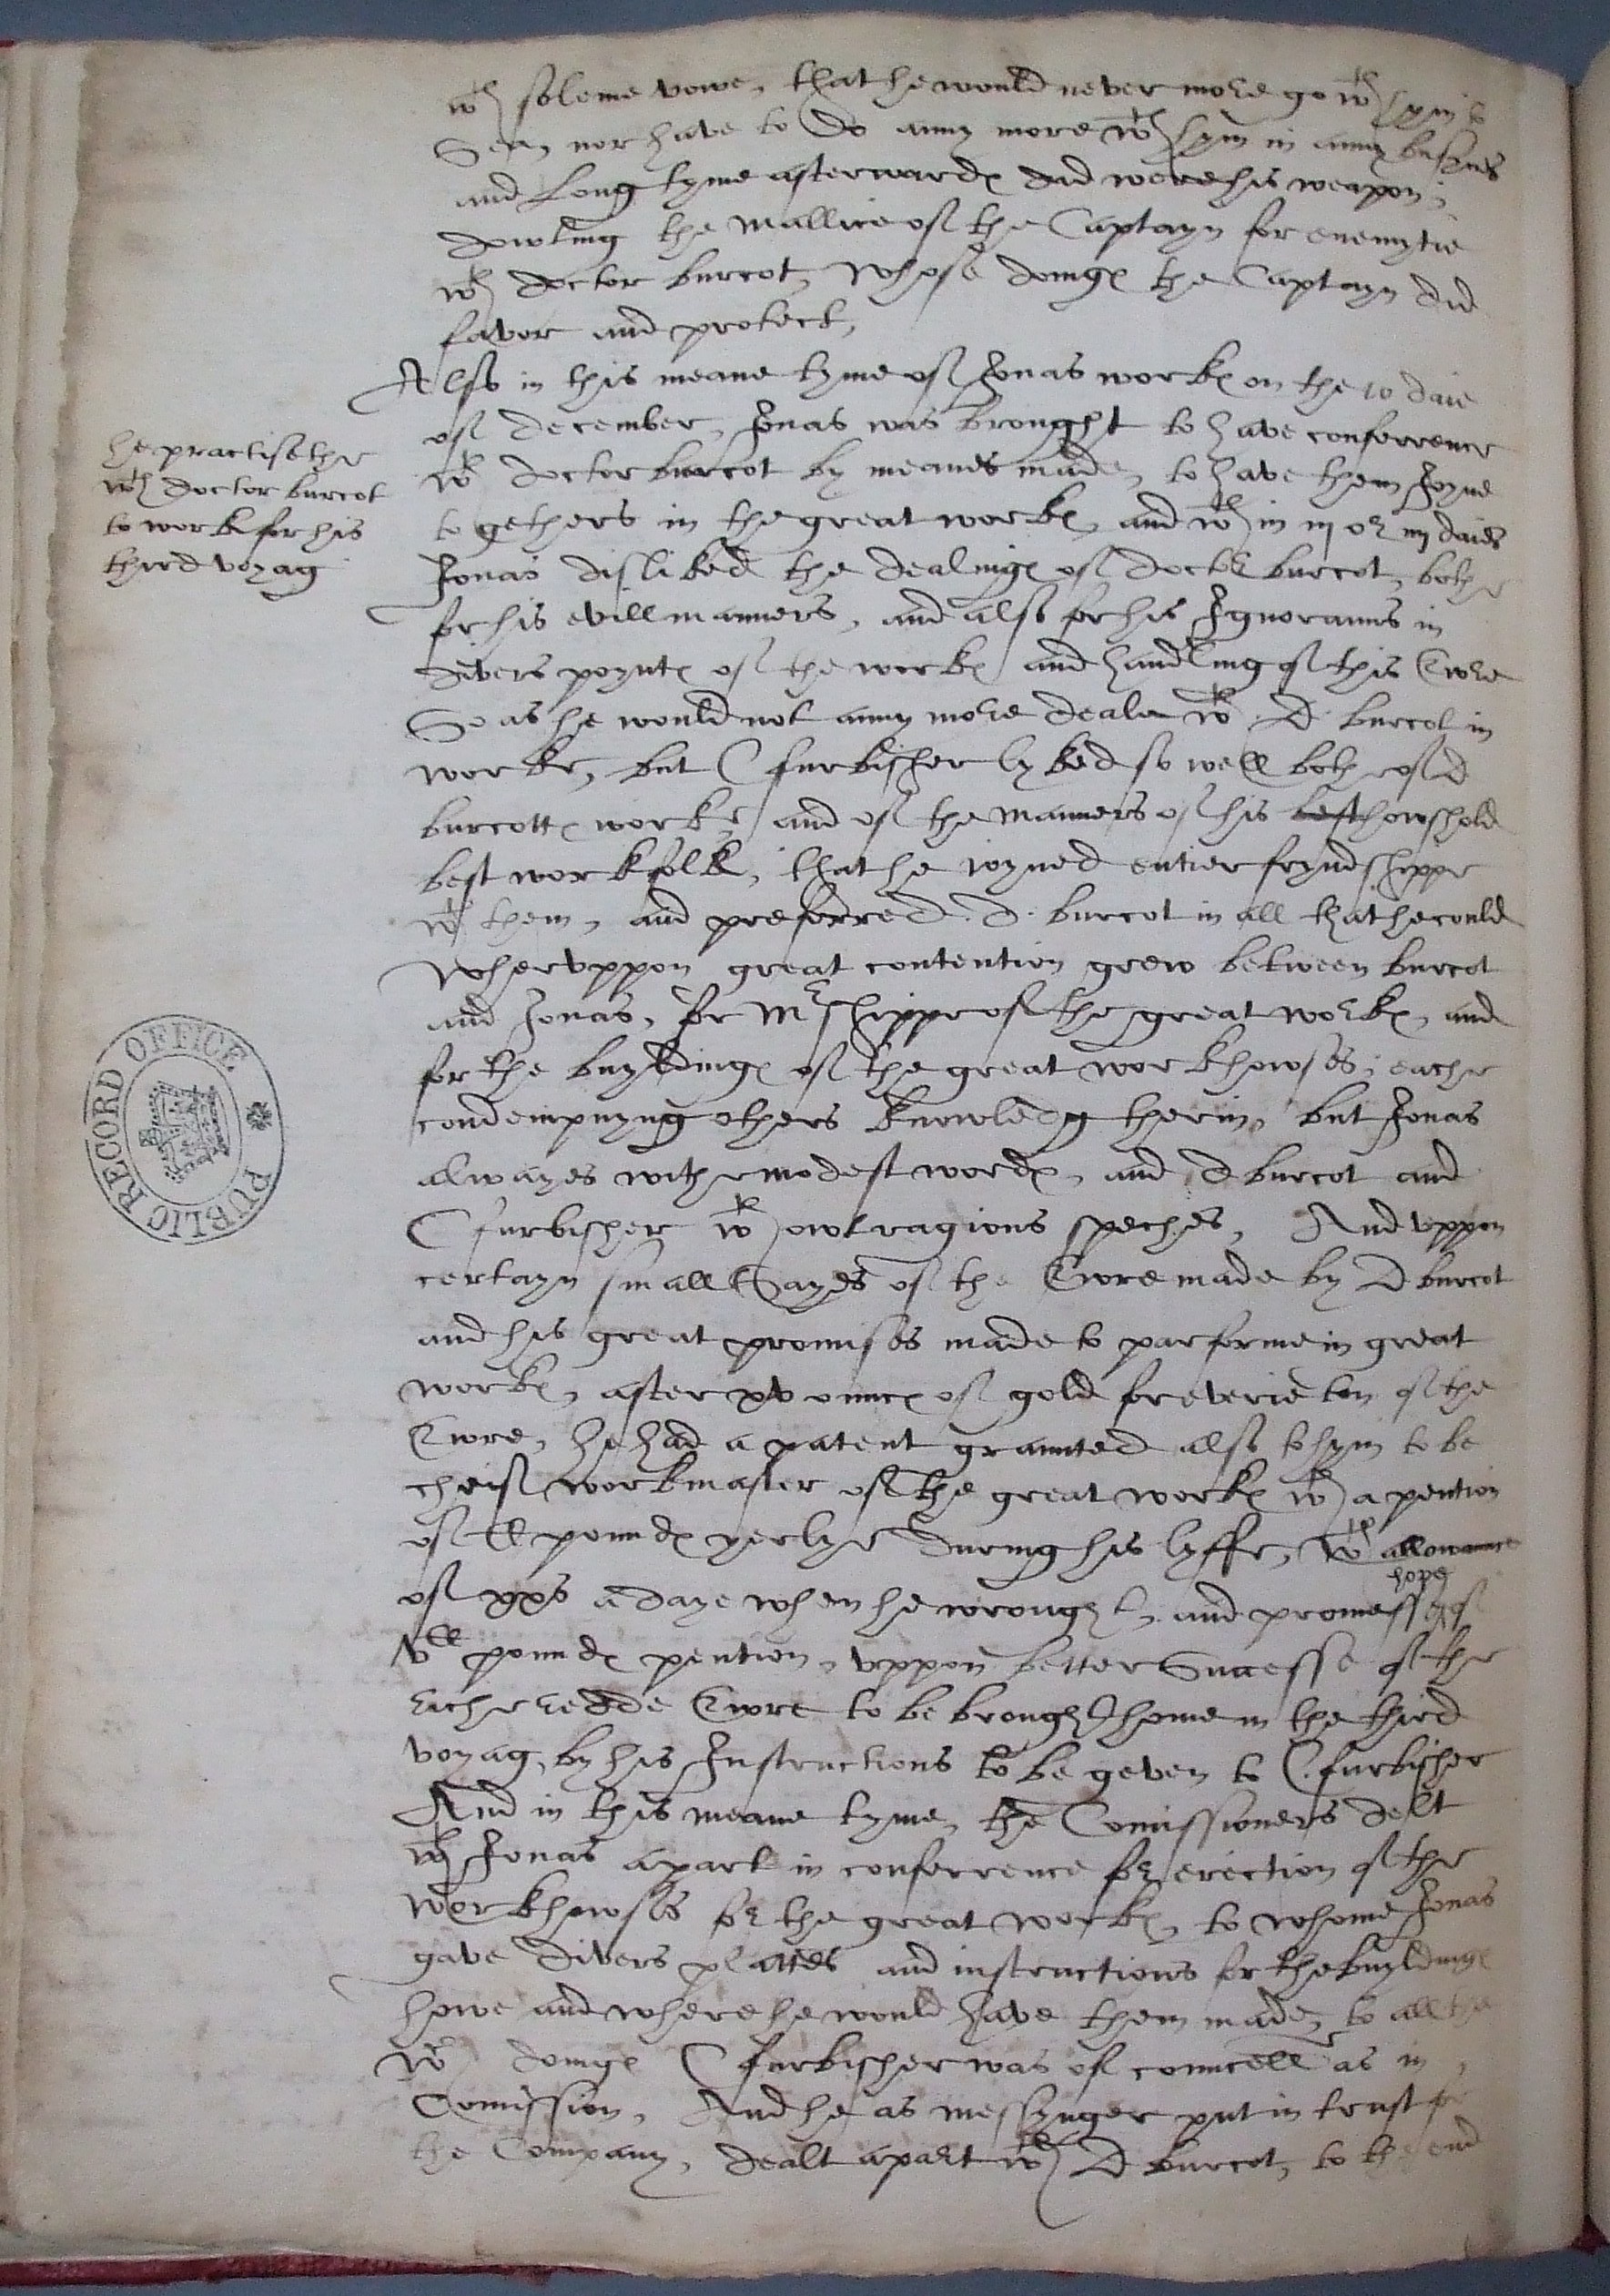 wth soleme vowe, that he would never more go wth hym to
Sea, nor have to do anny more wth hym in anny busynes
and long tyme afterwardes did weare his weapon;
dowting the mallice of the Captayn for enemytie
wth doctor burcot, whose doinges the Captayn did
favor and protect,
Also in this meane tyme of Jonas workes on the 10 daie
of december, Jonas was brought to have conferrence
wth doctor burcot by meanes made, to have them Joyne
to gethers in the great workes, and wth in iij or iiij daies
Jonas disliked the dealinges of doctor burcot, bothe
for his evill manners, and also for his Ignorauns in
divers poyntes of the workes and handling of this Ewre
So as he would not anny more deale wth D burcot in
worke, but C furbisher lyked so well bothe of D
burcottes workes and of the manners of his best howshold
best workfolk, that he ioyned entier fryndshippe
wth them, and preferred. D. burcot in all that he could
Wheruppon great contention grew between burcot
and Jonas, for Mrshippe of the great workes, and
for the buyldinges of the great workhowses; eache
condempnyng others knowledg therin, but Jonas
alwayes withe modest wordes, and D burcot and
C furbisher wth owtragious speches, And uppon
certayn small Sayes of the Ewre made by D burcot
and his great promises made to parforme in great
workes, after xv ounces of gold for everie ton of the
Ewre, he had a patent graunted also to hym to be
cheif workmaster of the great workes wth a pention
of CC poundes yerlye during his lyffe, wth allowaunce
of xxs a daye when he wrought, and promesse of
hope
Vc poundes pention, uppon better Successe of the
riche redde Ewre to be brought home in the third
voyag, by his Instructions to be geven to C. furbisher
And in this meane tyme, the Comissioners delt
wth Jonas apart in conferrence for erection of the
workhowses for the great workes, to whome Jonas
gave divers plattes and instructions for the buyldinges
howe and where he would have them made, to all the
wch doinges C furbisher was of councell as in
Comission, And he as messynger put in trust for
the Company, dealt apart wth D burcot, to the end
he practisethe
wth doctor burcot
to work for his
third voyag
PUBLIC RECORD OFFICE